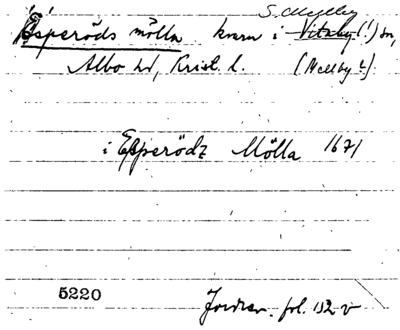 S. Mellby
Esperöds mölla kvarn i Vitaby (!) sn,
Albo hd, Krist. l. (Mellby !).
i Esperödz Mölla 1671
5220
Jordrev. fol. 132 v